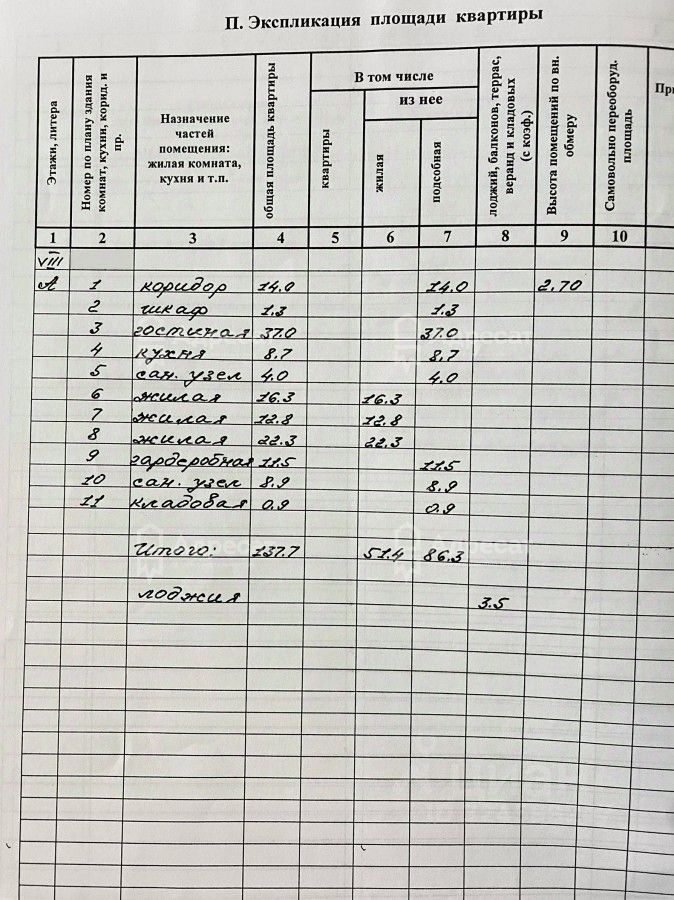 П. Экспликация площади квартиры
Этажи, литера
Номер по плану здания комнат, кухни, корид. и пр.
Назначение частей помещения: жилая комната, кухня и т.п.
общая площадь квартиры
В том числе
квартиры
из нее
жилая
подсобная
лоджий, балконов, террас, веранд и кладовых (с коэф.)
Высота помещений по вн. обмеру
Самовольно переоборуд. площадь
При
1 2 3 4 5 6 7 8 9 10
VIII
А 1 коридор 14.0 14.0 2.70
2 шкаф 1.3 1.3
3 гостиная 37.0 37.0
4 кухня 8.7 8.7
5 сан. узел 4.0 4.0
6 жилая 16.3 16.3
7 жилая 12.8 12.8
8 жилая 22.3 22.3
9 гардеробная 11.5 11.5
10 сан. узел 8.9 8.9
11 кладовая 0.9 0.9
Итого: 137.7 51.4 86.3
лоджия 3.5